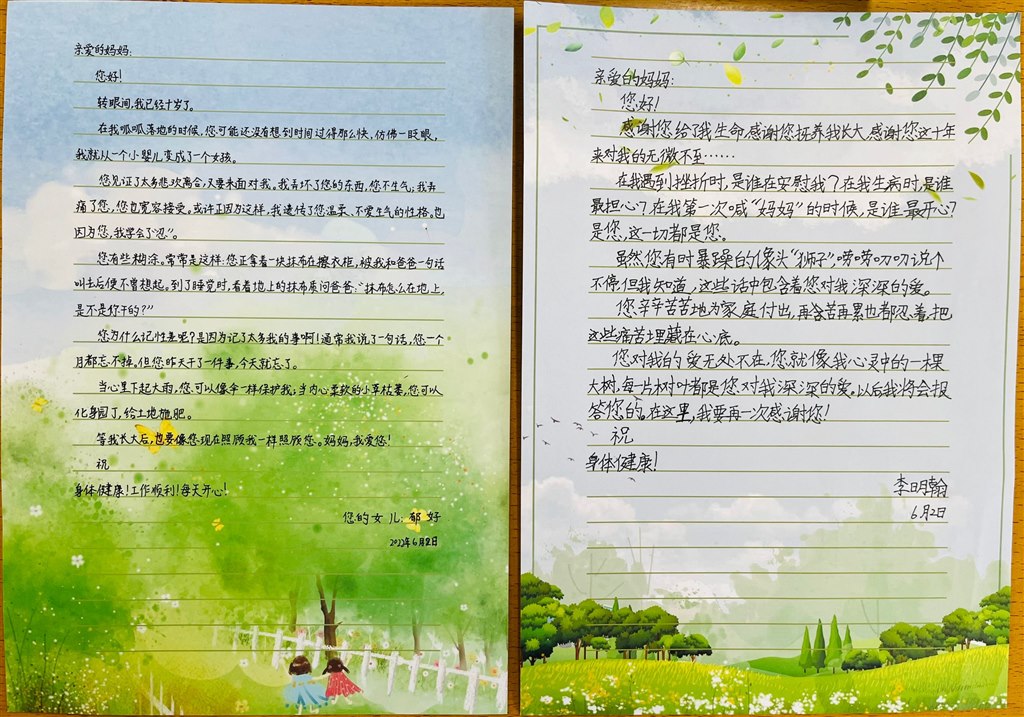 亲爱的妈妈:
您好!
转眼间,我已经十岁了。
在我呱呱落地的时候,您可能还没有想到时间过得那么快,仿佛一眨眼,
我就从一个小婴儿变成了一个女孩。
您见证了太多悲欢离合,又要来面对我。我弄坏了您的东西,您不生气;我弄
痛了您,您也宽容接受。或许正因为这样,我遗传了您温柔、不爱生气的性格。也
因为您,我学会了“忍”。
您有些糊涂。常常是这样:您正拿着一块抹布在擦衣柜,被我和爸爸一句话
叫去后便不曾想起。到了睡觉时,看着地上的抹布质问爸爸:“抹布怎么在地上,
是不是你干的?”
您为什么记性差呢?是因为记了太多我的事啊!通常我说了一句话,您一个
月都忘不掉。但您昨天干了一件事,今天就忘了。
当心里下起大雨,您可以像伞一样保护我;当内心柔软的小草枯萎,您可以
化身园丁,给土地施肥。
等我长大后,也要像您现在照顾我一样照顾您。妈妈,我爱您!
祝
身体健康!工作顺利!每天开心!
您的女儿:郁好
2022年6月2日
亲爱的妈妈:
您好!
感谢您给了我生命,感谢您抚养我长大,感谢您这十年
来对我的无微不至……
在我遇到挫折时,是谁在安慰我?在我生病时,是谁
最担心?在我第一次喊“妈妈”的时候,是谁最开心?
是您,这一切都是您。
虽然您有时暴躁的像头“狮子”,唠唠叨叨说个
不停,但我知道,这些话中包含着您对我深深的爱。
您辛辛苦苦地为家庭付出,再苦再累也都忍着,把
这些痛苦埋藏在心底。
您对我的爱无处不在,您就像我心灵中的一棵
大树,每一片树叶都是您对我深深的爱。以后我将会报
答您的。在这里,我要再一次感谢您!
祝
身体健康!
李明翰
6月2日